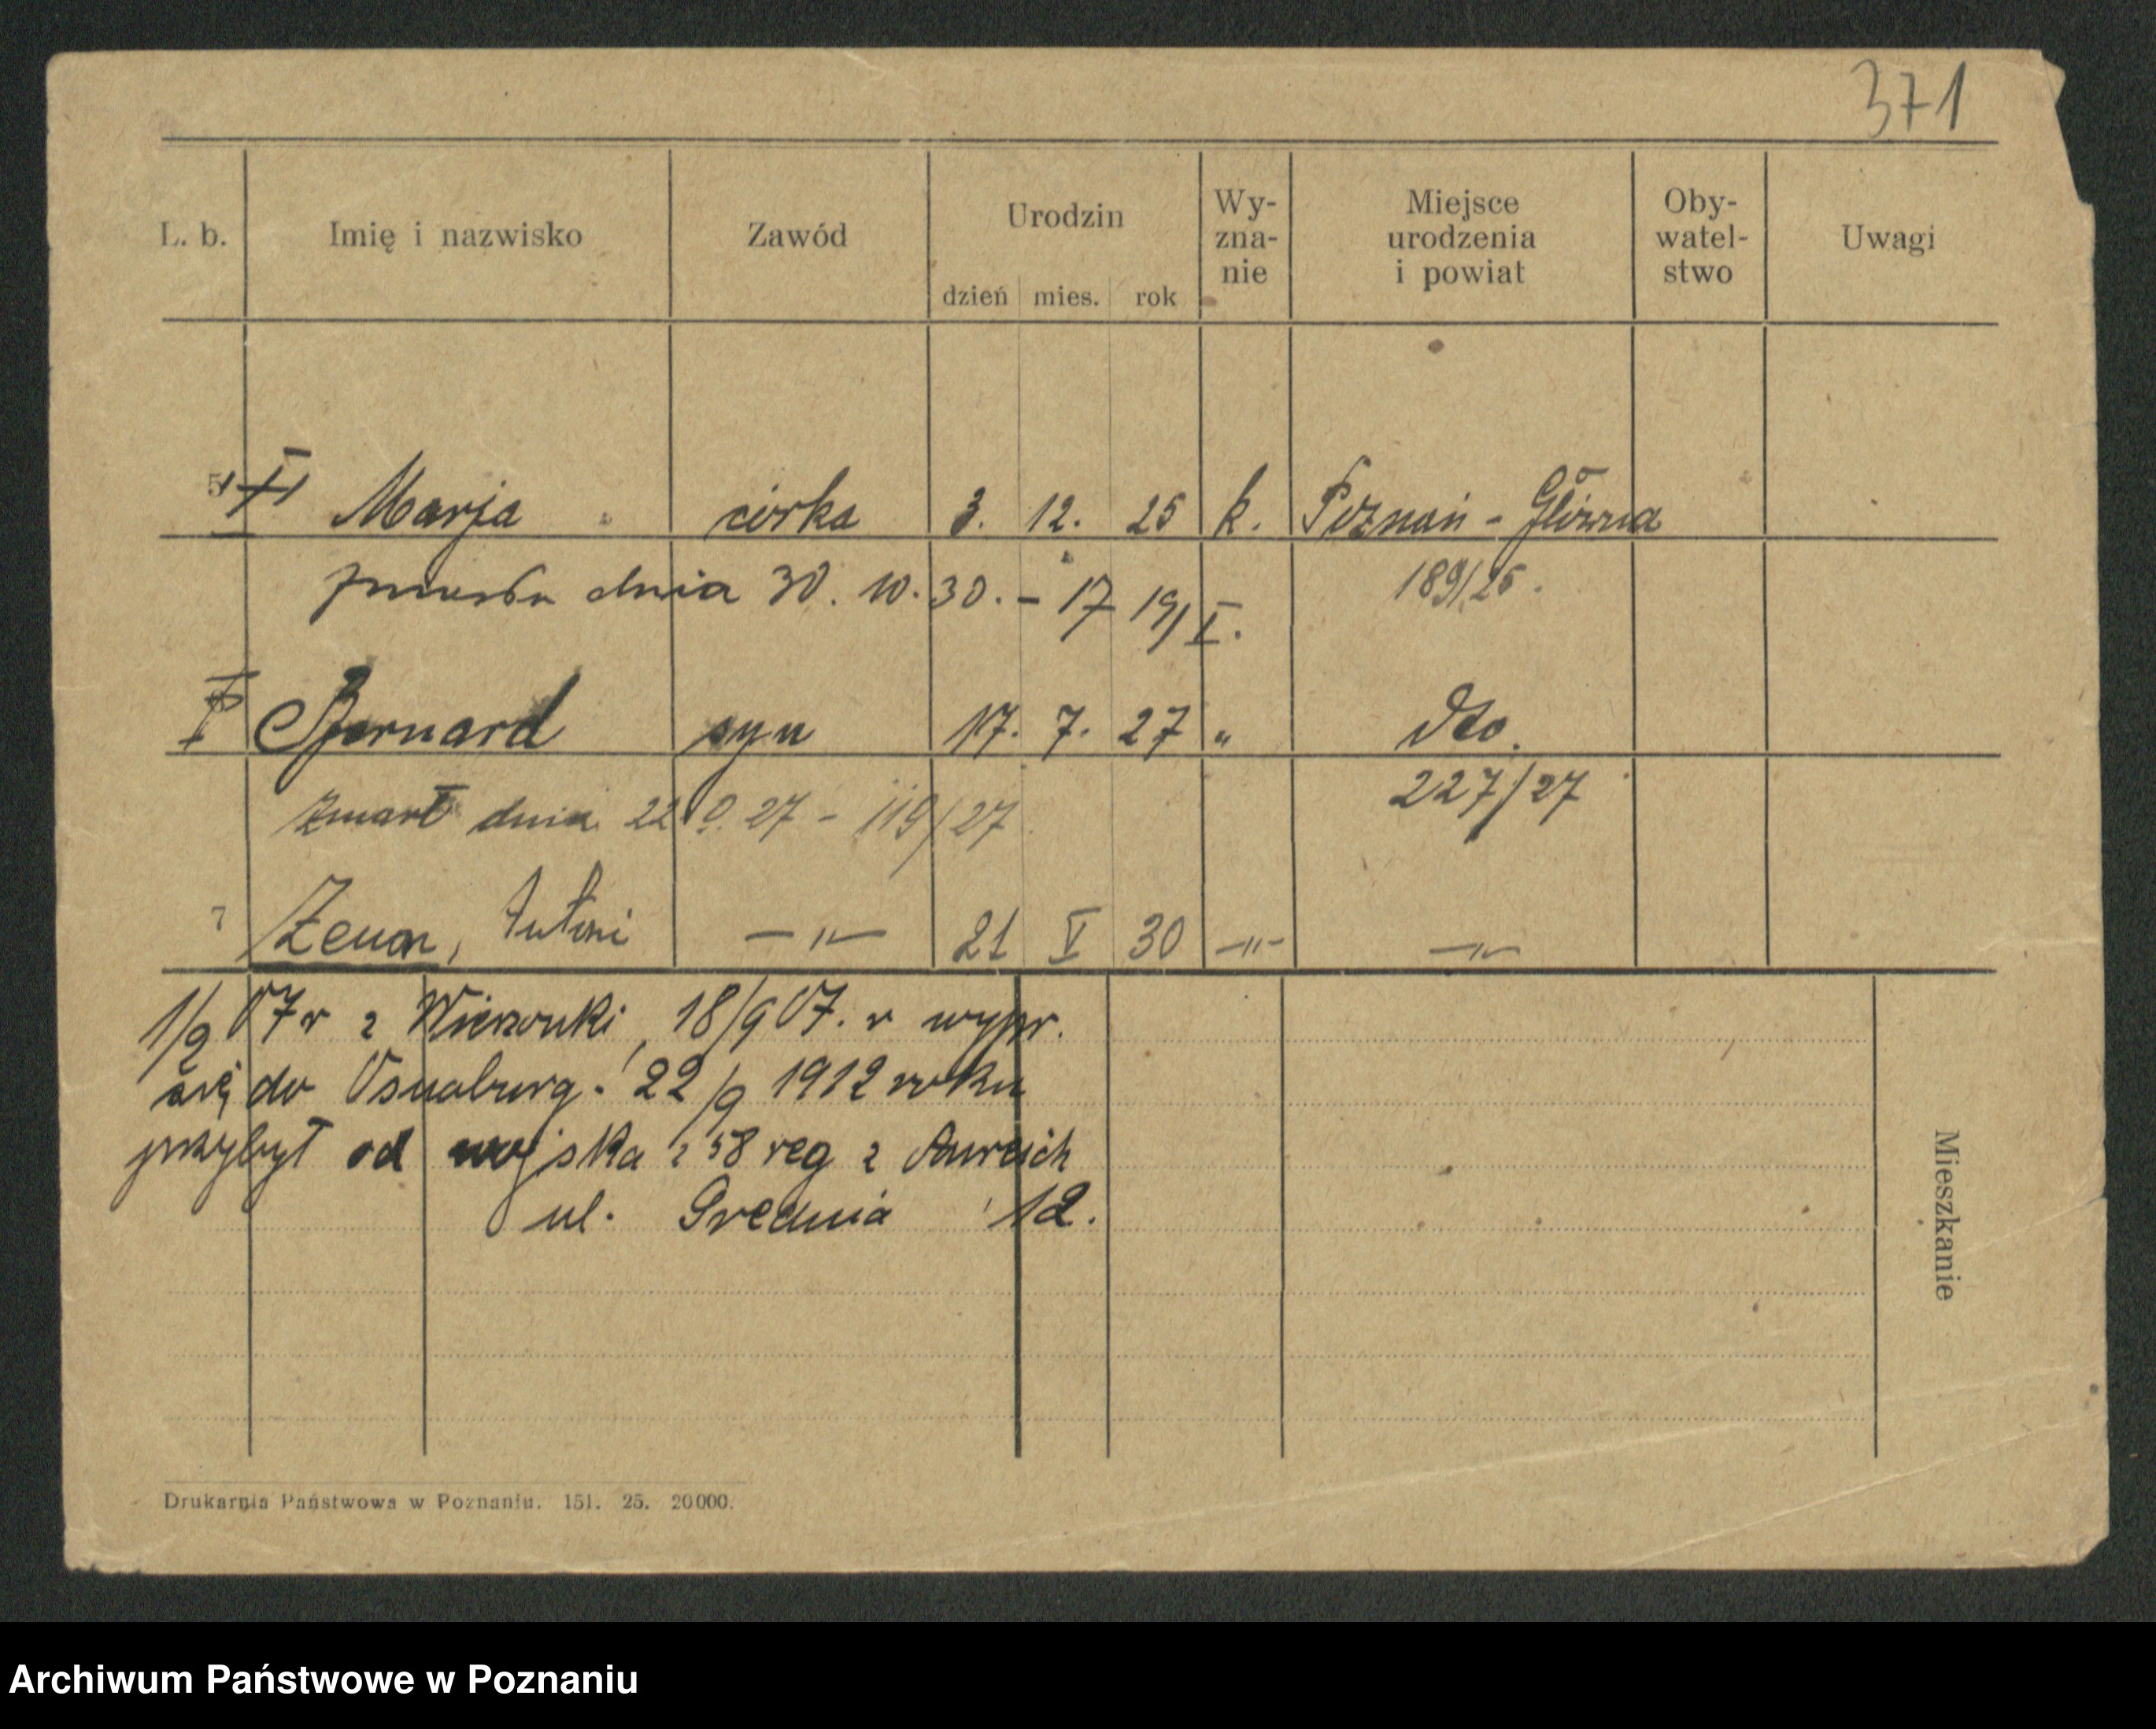 371
L. b. Imię i nazwisko Zawód Urodzin Wy- Miejsce Oby- Uwagi
zna- urodzenia watel-
dzień mies. rok nie i powiat stwo
5 Marja córka 3. 12. 25 k. Poznań - Główna
dnia 30. 10. 30. - 17 19/I. 189/25.
Bernard syn 17. 7. 27 " dto.
zmarł dnia 22 9. 27 - 119/27 227/27
7 Zenon, Antoni -"- 21 V 30 -"- -"-
1/9 07 r z Wierzonki, 18/9 07. r wypr.
się do Osnaburg. 22/9 1912 roku
przybył od wojska z 58 reg z Aureich
ul. Srednia 12.
Mieszkanie
Drukarnia Państwowa w Poznaniu. 151. 25. 20000.
Archiwum Państwowe w Poznaniu